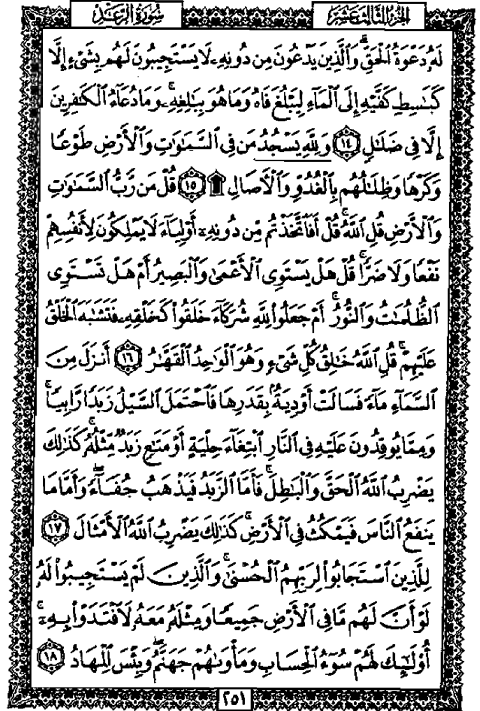 سُورَةُ الرَّعْدِ
الجُزْءُ الثَّالِثَ عَشَرَ
لَهُۥ دَعْوَةُ ٱلْحَقِّ ۖ وَٱلَّذِينَ يَدْعُونَ مِن دُونِهِۦ لَا يَسْتَجِيبُونَ لَهُم بِشَىْءٍ إِلَّا
كَبَـٰسِطِ كَفَّيْهِ إِلَى ٱلْمَآءِ لِيَبْلُغَ فَاهُ وَمَا هُوَ بِبَـٰلِغِهِۦ ۚ وَمَا دُعَآءُ ٱلْكَـٰفِرِينَ
إِلَّا فِى ضَلَـٰلٍ ١٤ وَلِلَّهِ يَسْجُدُ مَن فِى ٱلسَّمَـٰوَٰتِ وَٱلْأَرْضِ طَوْعًا
وَكَرْهًا وَظِلَـٰلُهُم بِٱلْغُدُوِّ وَٱلْـَٔاصَالِ ۩ ١٥ قُلْ مَن رَّبُّ ٱلسَّمَـٰوَٰتِ
وَٱلْأَرْضِ قُلِ ٱللَّهُ ۚ قُلْ أَفَٱتَّخَذْتُم مِّن دُونِهِۦٓ أَوْلِيَآءَ لَا يَمْلِكُونَ لِأَنفُسِهِمْ
نَفْعًا وَلَا ضَرًّا ۚ قُلْ هَلْ يَسْتَوِى ٱلْأَعْمَىٰ وَٱلْبَصِيرُ أَمْ هَلْ تَسْتَوِى
ٱلظُّلُمَـٰتُ وَٱلنُّورُ ۗ أَمْ جَعَلُوا۟ لِلَّهِ شُرَكَآءَ خَلَقُوا۟ كَخَلْقِهِۦ فَتَشَـٰبَهَ ٱلْخَلْقُ
عَلَيْهِمْ ۚ قُلِ ٱللَّهُ خَـٰلِقُ كُلِّ شَىْءٍ وَهُوَ ٱلْوَٰحِدُ ٱلْقَهَّـٰرُ ١٦ أَنزَلَ مِنَ
ٱلسَّمَآءِ مَآءً فَسَالَتْ أَوْدِيَةٌۢ بِقَدَرِهَا فَٱحْتَمَلَ ٱلسَّيْلُ زَبَدًا رَّابِيًا ۚ
وَمِمَّا يُوقِدُونَ عَلَيْهِ فِى ٱلنَّارِ ٱبْتِغَآءَ حِلْيَةٍ أَوْ مَتَـٰعٍ زَبَدٌ مِّثْلُهُۥ ۚ كَذَٰلِكَ
يَضْرِبُ ٱللَّهُ ٱلْحَقَّ وَٱلْبَـٰطِلَ ۚ فَأَمَّا ٱلزَّبَدُ فَيَذْهَبُ جُفَآءً ۖ وَأَمَّا مَا
يَنفَعُ ٱلنَّاسَ فَيَمْكُثُ فِى ٱلْأَرْضِ ۚ كَذَٰلِكَ يَضْرِبُ ٱللَّهُ ٱلْأَمْثَالَ ١٧
لِلَّذِينَ ٱسْتَجَابُوا۟ لِرَبِّهِمُ ٱلْحُسْنَىٰ ۚ وَٱلَّذِينَ لَمْ يَسْتَجِيبُوا۟ لَهُۥ
لَوْ أَنَّ لَهُم مَّا فِى ٱلْأَرْضِ جَمِيعًا وَمِثْلَهُۥ مَعَهُۥ لَٱفْتَدَوْا۟ بِهِۦٓ ۚ
أُو۟لَـٰٓئِكَ لَهُمْ سُوٓءُ ٱلْحِسَابِ وَمَأْوَىٰهُمْ جَهَنَّمُ ۖ وَبِئْسَ ٱلْمِهَادُ ١٨
٢٥١